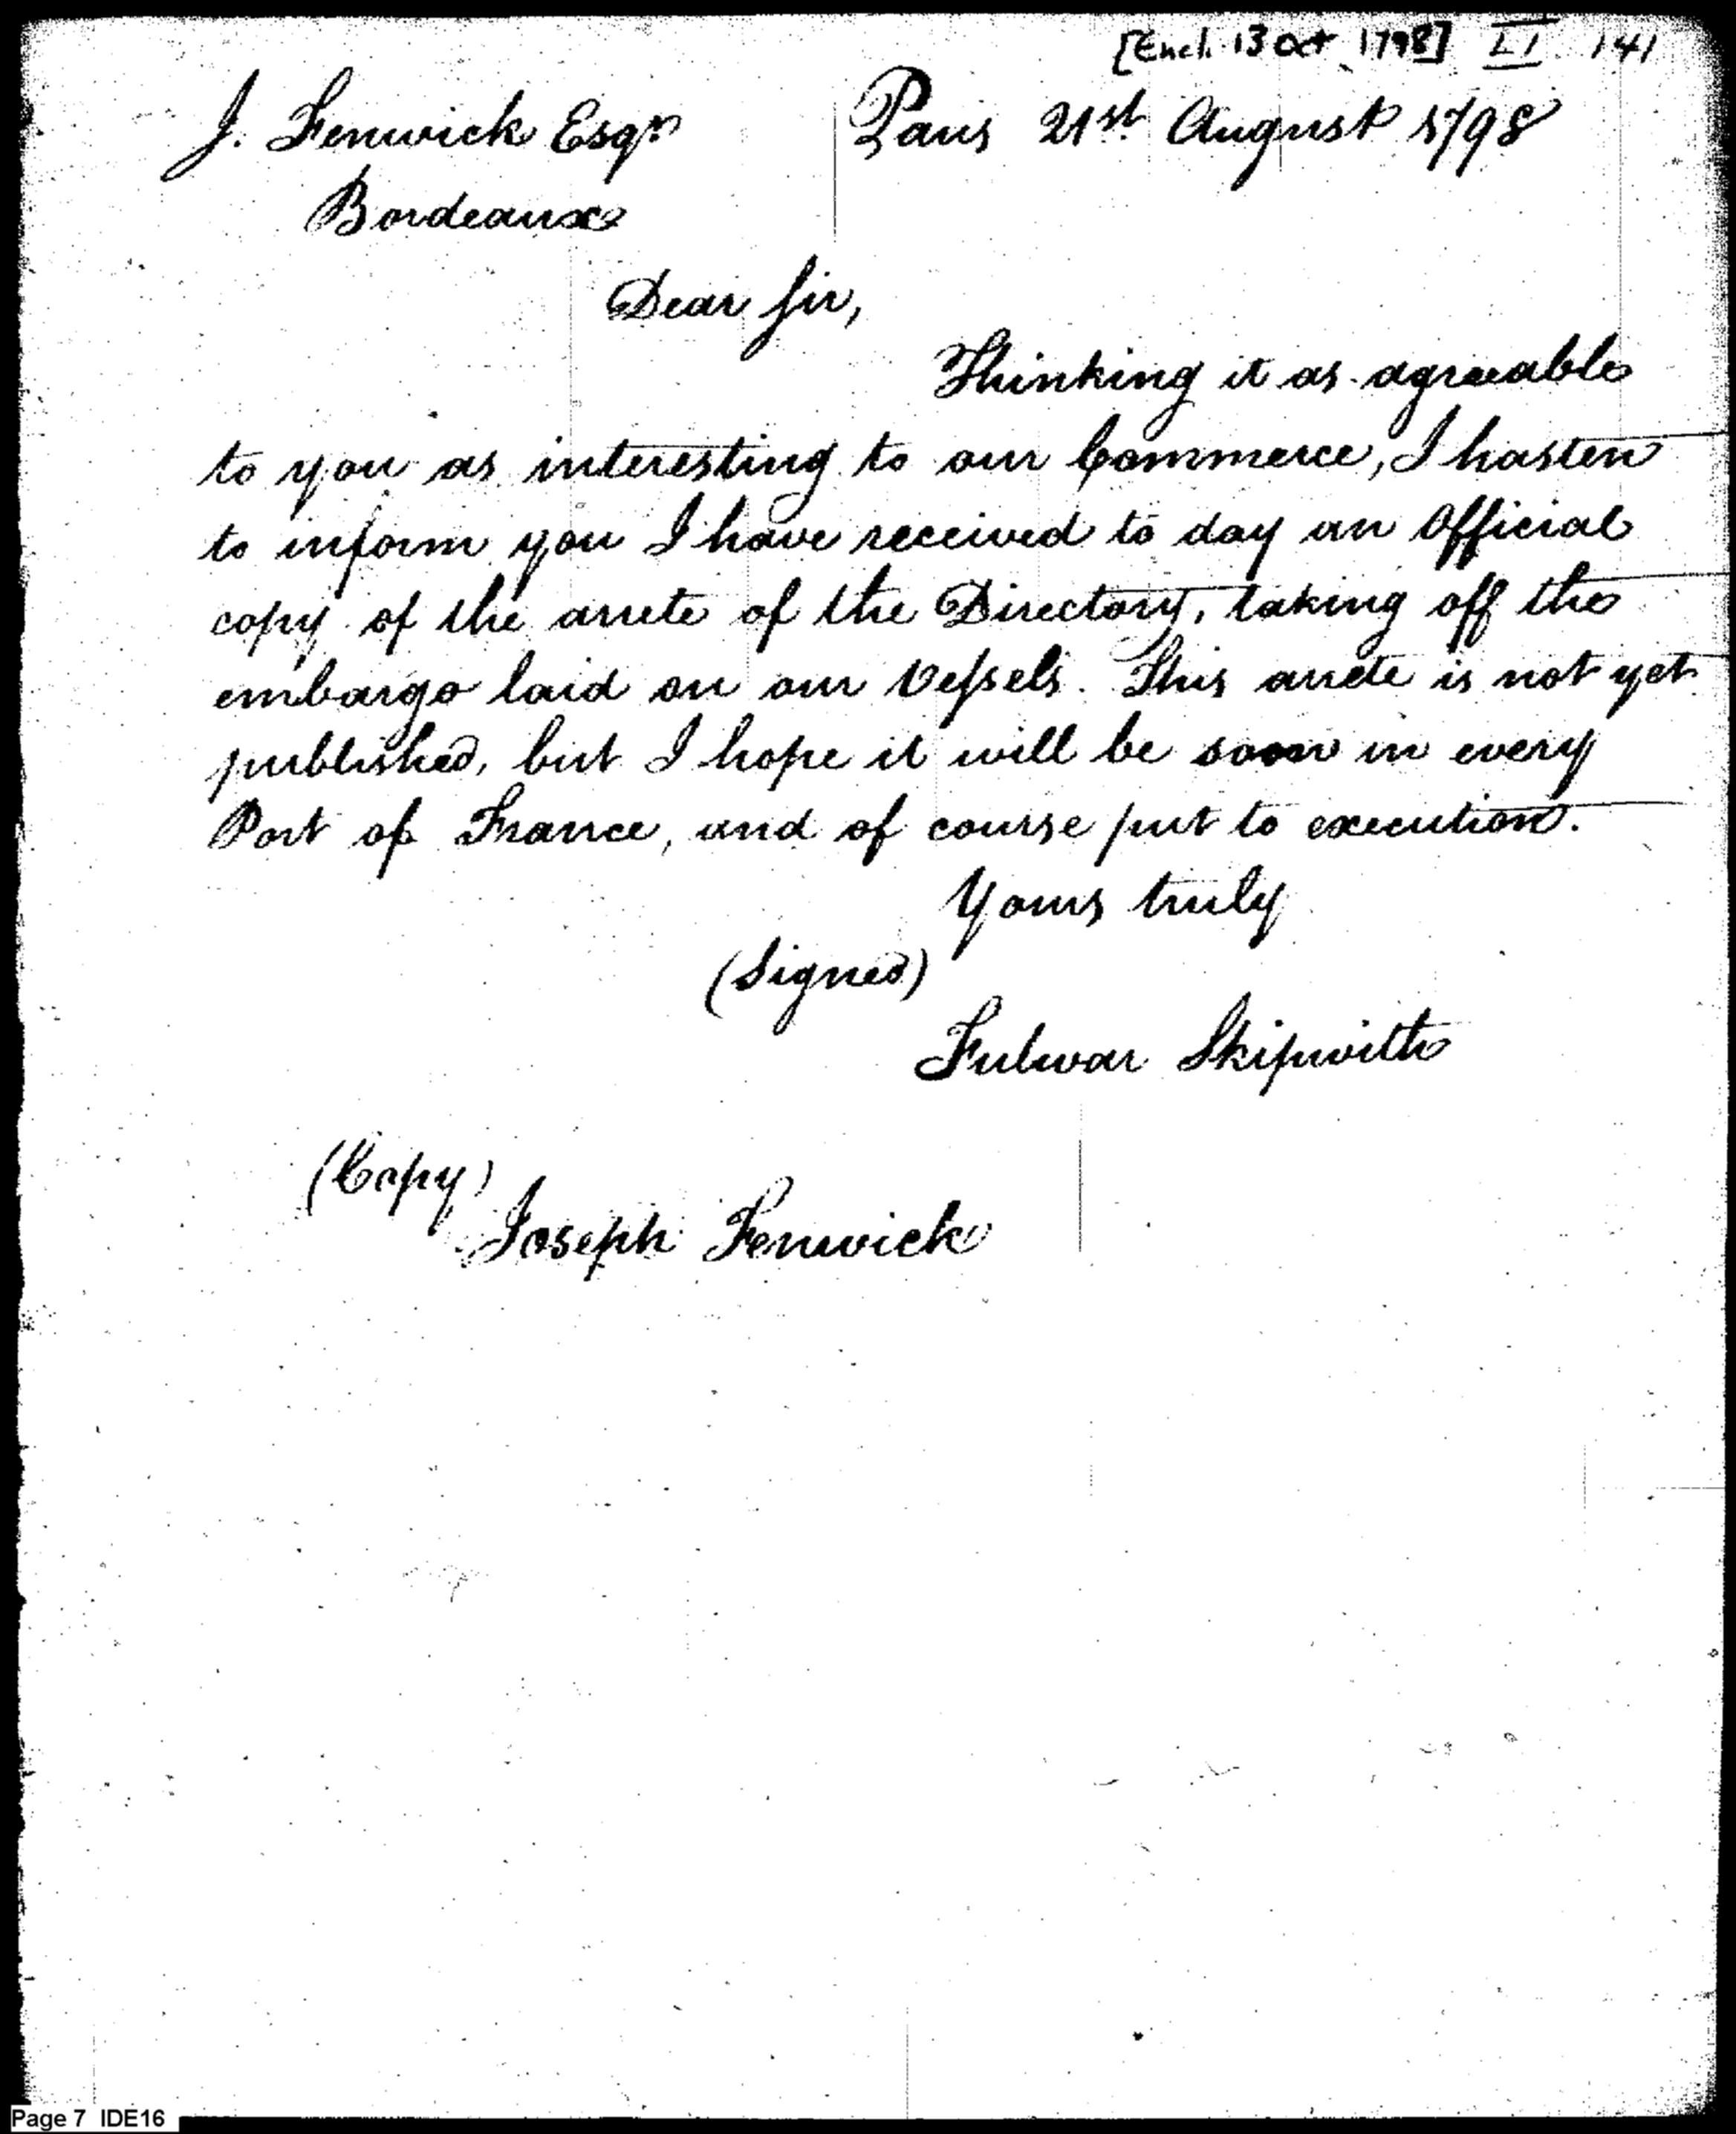 [Encl. 13 Oct 1798] LI 141
J. Fenwick Esqr Paris 21st August 1798
Bordeaux
Dear Sir,
Thinking it as agreeable
to you as interesting to our Commerce, I hasten
to inform you I have received to day an Official
copy of the arrete of the Directory, taking off the
embargo laid on our Vessels. This arrete is not yet
published, but I hope it will be soon in every
Port of France, and of course put to execution.
Yours truly
(Signed)
Fulwar Skipwith
(Copy)
Joseph Fenwick
Page 7 IDE16